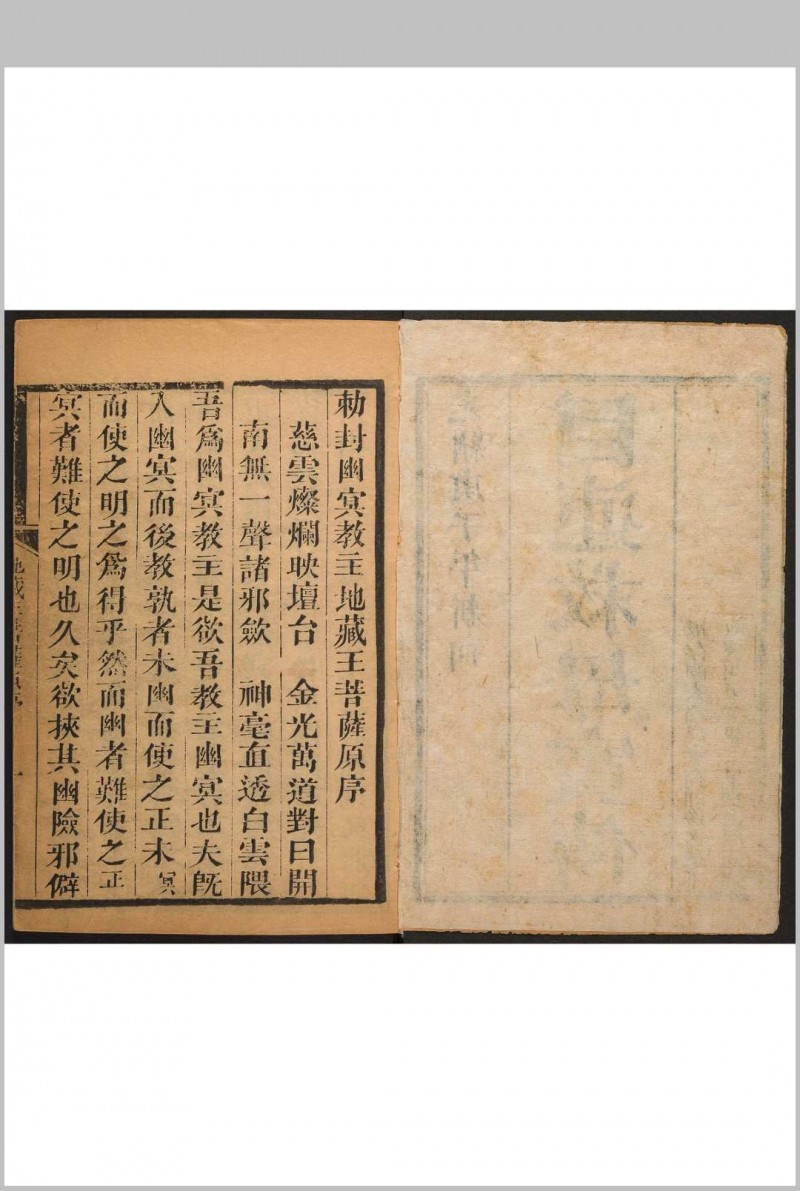 勅封幽冥教主地藏王菩薩原序
慈雲燦爛映壇台　金光萬道對日開
南無一聲諸邪歛　神毫直透白雲隈
吾爲幽冥教主是欲吾教主幽冥也夫既
入幽冥而後教孰若未幽而使之正未冥
而使之明之爲得乎然而幽者難使之正
冥者難使之明也久矣欲挾其幽險邪僻
地藏王菩薩原序
一